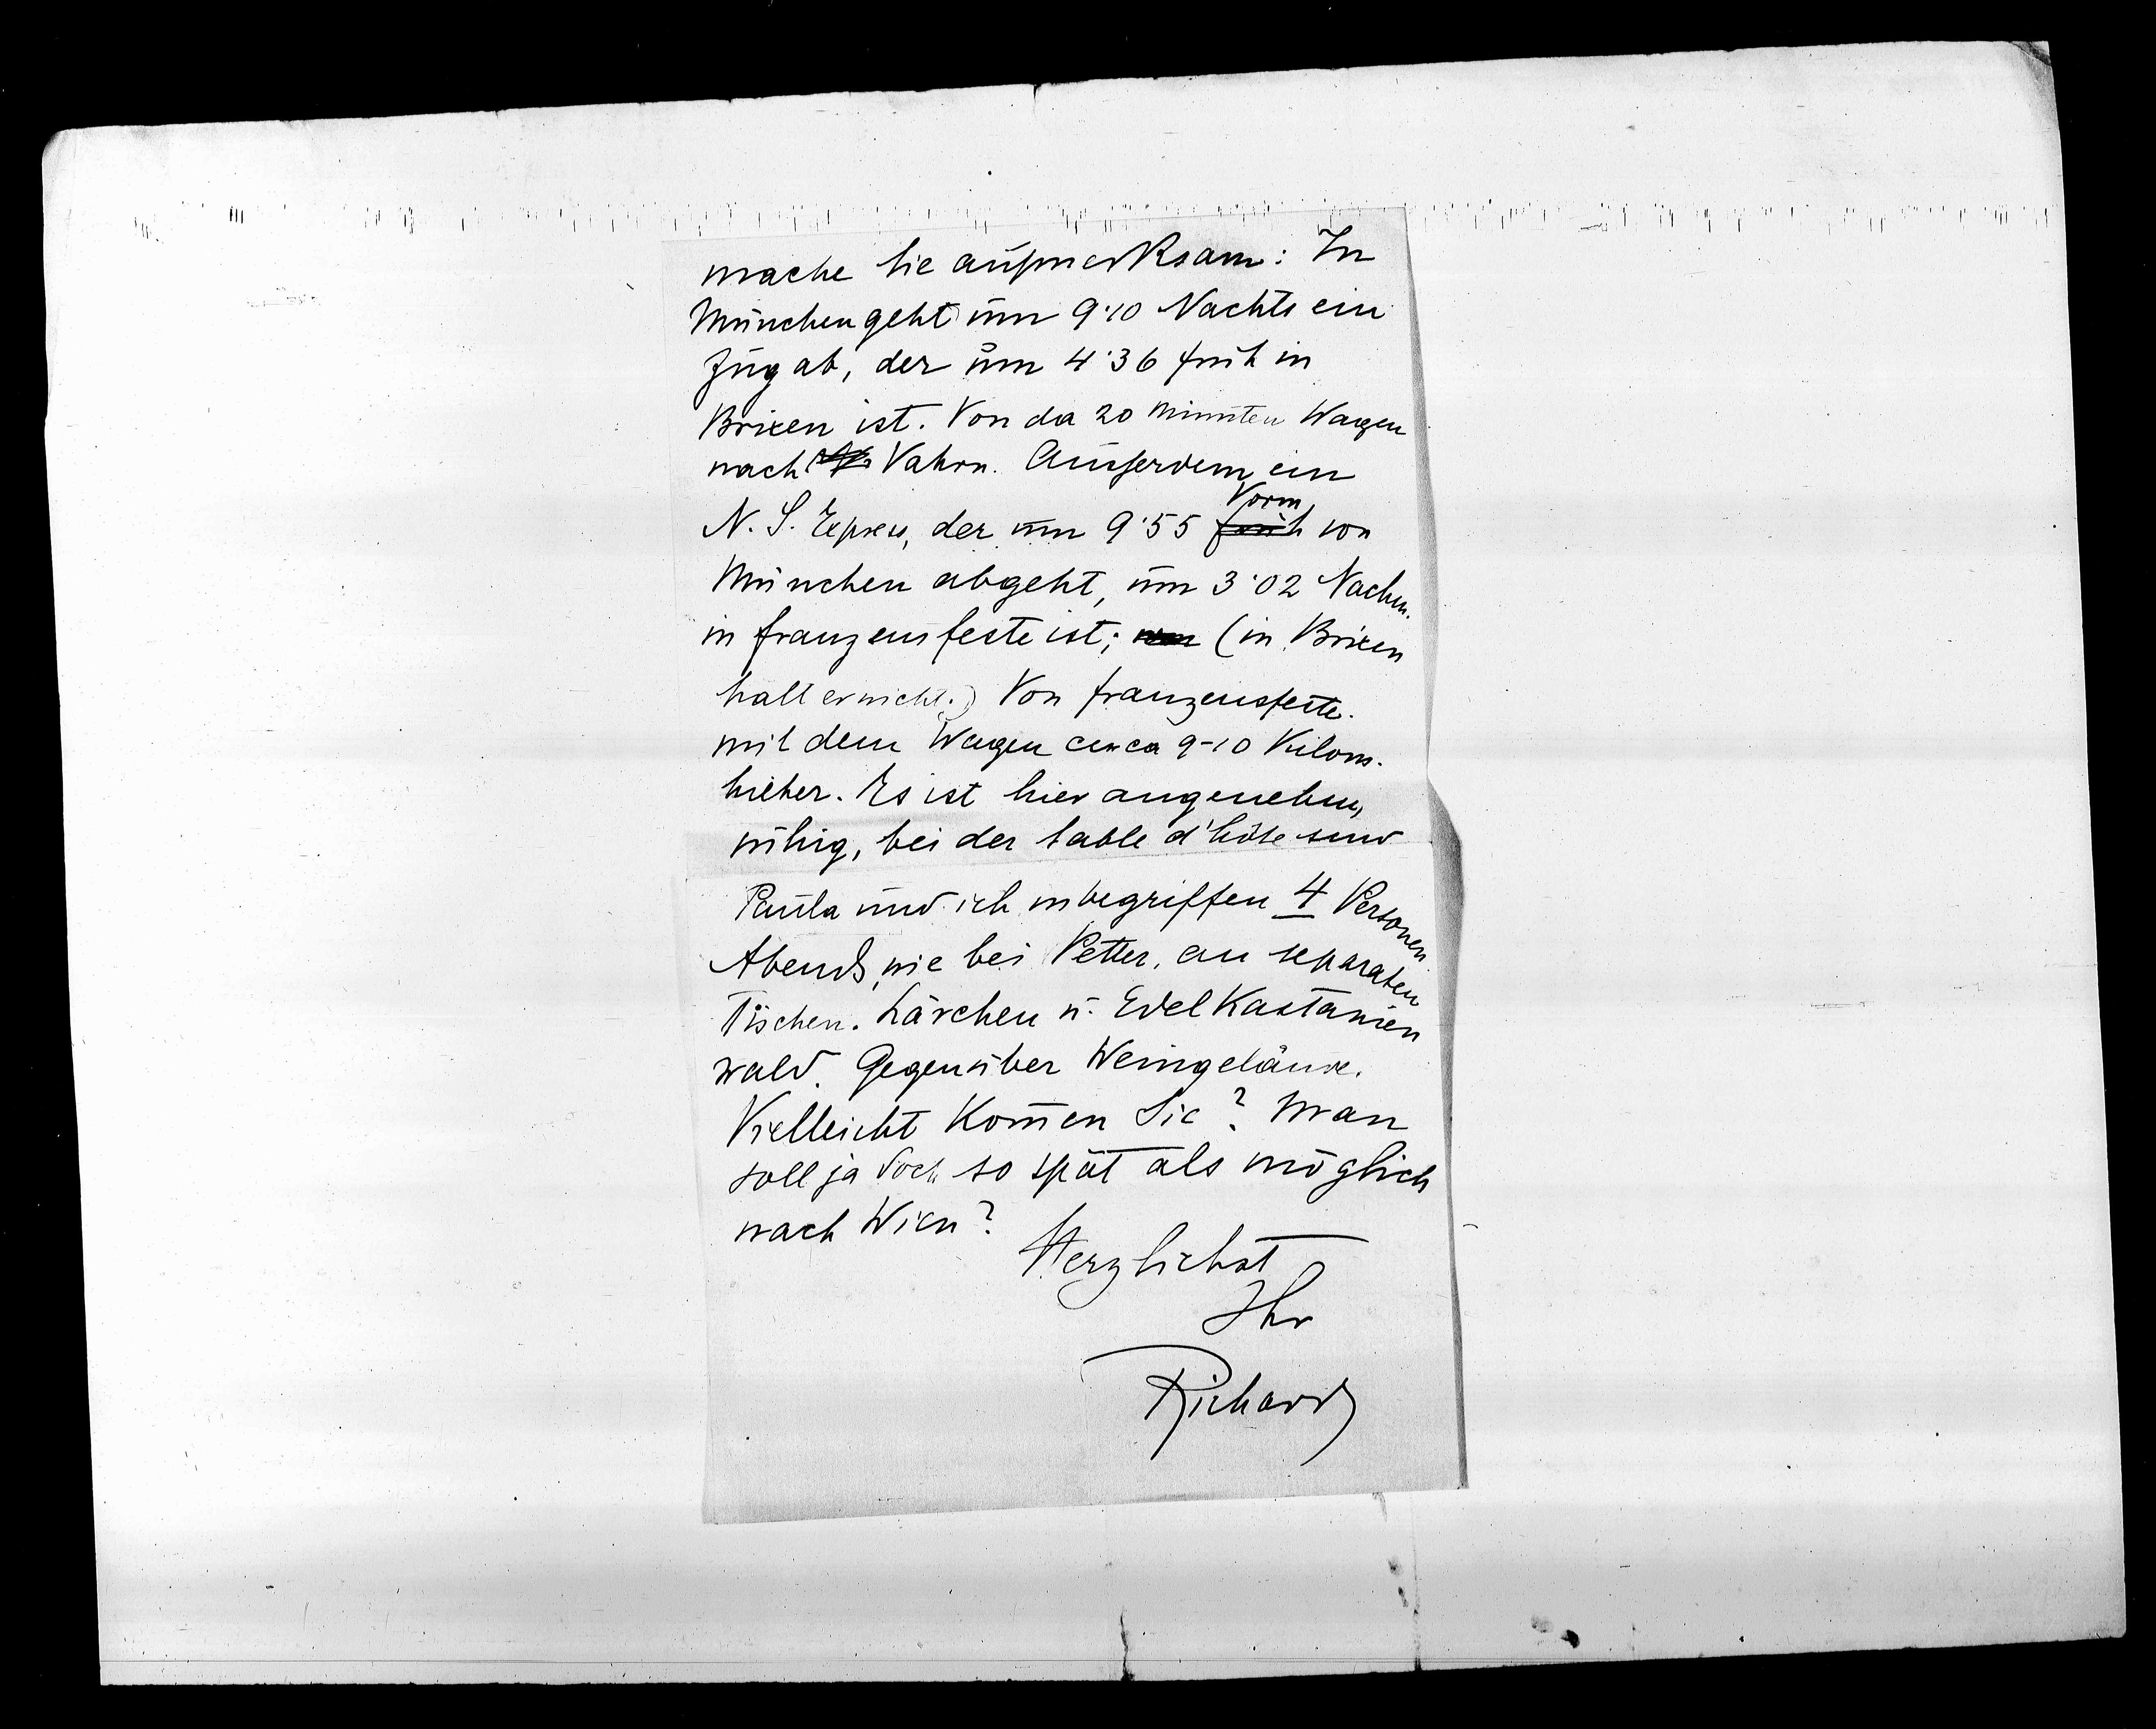 mache Sie aufmerksam: In
München geht um 9·10 Nachts ein
Zug ab, der um 4·36 früh in
Brixen ist. Von da 20 Minuten Wagen
nach Vahrn. Außerdem ein
N. S. Express, der um 9·55 Vorm früh von
München abgeht, um 3·02 Nachm.
in Franzensfeste ist; (in Brixen
hält er nicht.) Von Franzensfeste.
mit dem Wagen circa 9-10 Kilom.
hieher. Es ist hier angenehm,
ruhig, bei der table d'hôte sind
Paula und ich inbegriffen 4 Personen
Abends, wie bei Petter, an separaten
Tischen. Lärchen u. Edelkastanien
wald. Gegenüber Weingelände.
Vielleicht kom̄en Sie? Man
soll ja doch so spät als möglich
nach Wien?
Herzlichst
Ihr
Richard